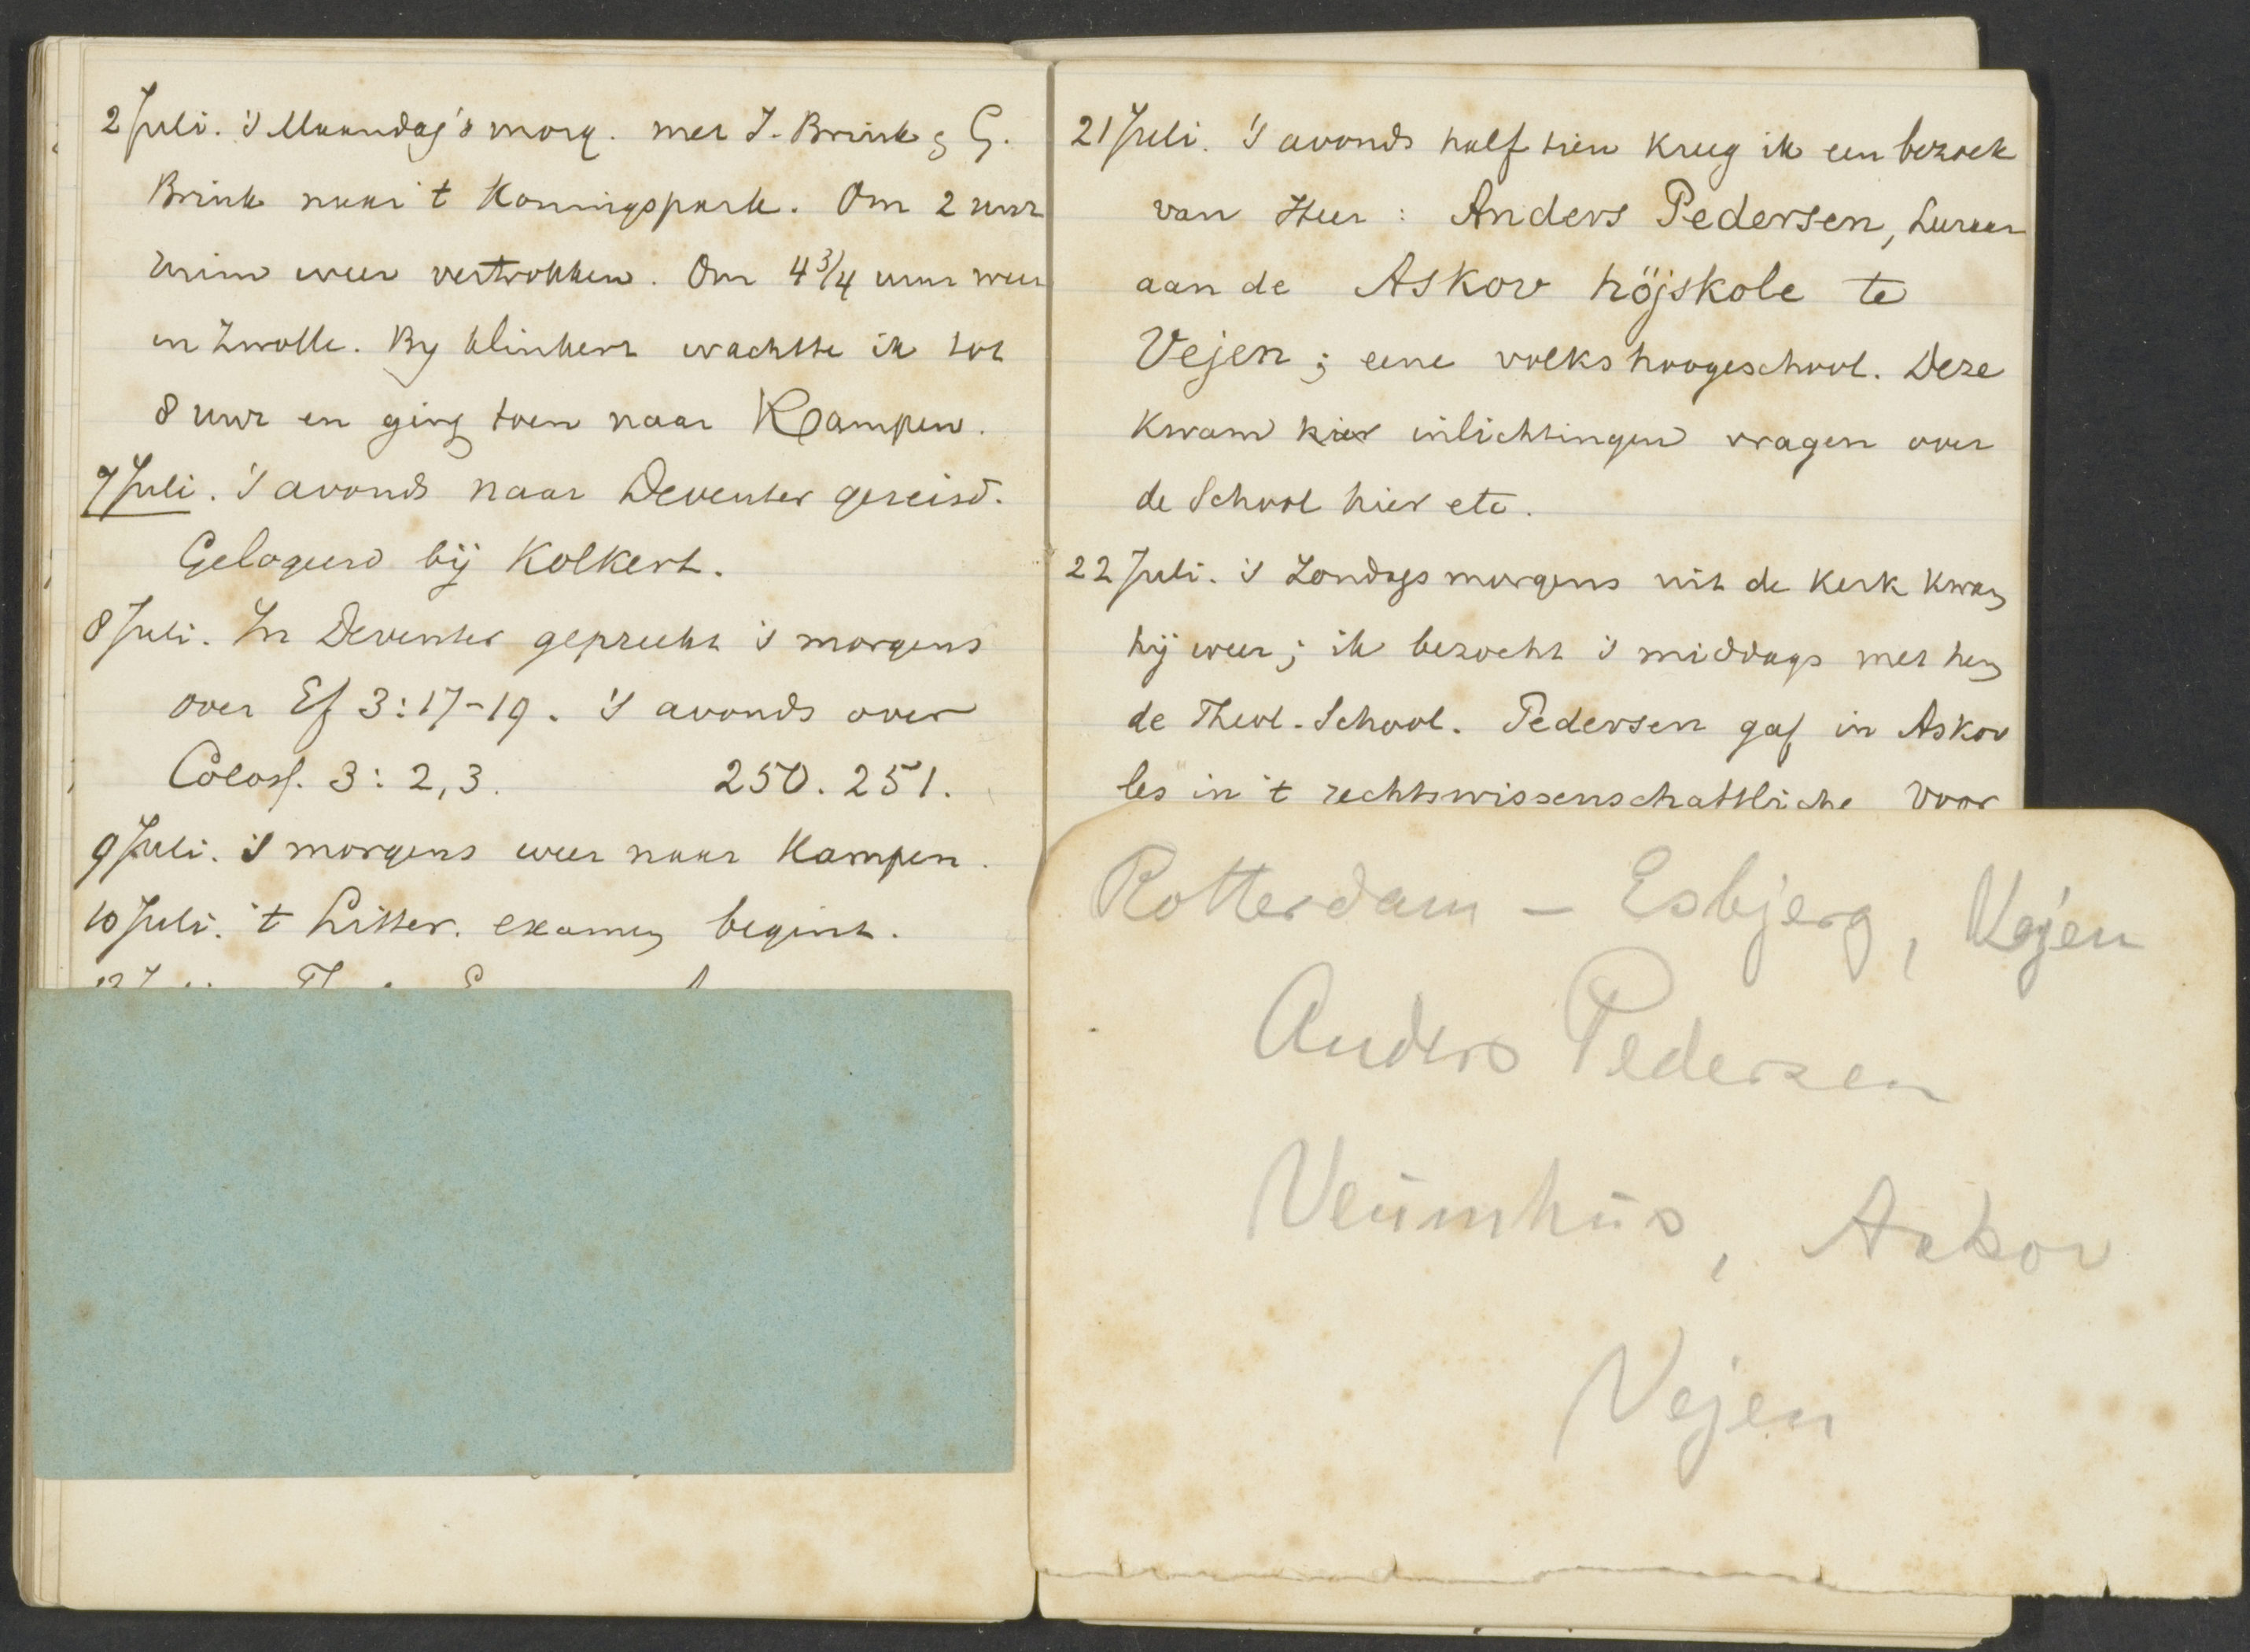 2 Juli. 's Maandag's morg. met J. Brink & G.
Brink naar 't Koningspark. Om 2 uur
ruim weer vertrokken. Om 4 3/4 uur weer
in Zwolle. By Klinkert wachtte ik tot
8 uur en ging toen naar Kampen.
7 Juli. 's avonds naar Deventer gereisd.
Gelogeerd bij Kolkert.
8 Juli. In Deventer gepreekt 's morgens
over Ef 3:17-19. 's avonds over
Coloss. 3: 2,3. 250. 251.
9 Juli. 's morgens weer naar Kampen.
10 Juli. 't Litter. examen begint.
21 Juli. 's avonds half tien kreeg ik een bezoek
van Heer: Anders Pedersen, Leeraar
aan de Askov höjskole te
Vejen; eene volkshoogeschool. Deze
kwam hier inlichtingen vragen over
de School hier etc.
22 Juli. 's Zondags morgens uit de kerk kwam
hij weer; ik bezocht 's middags met hem
de Theol. School. Pedersen gaf in Askov
les in 't rechtswissenschaftliche voor
Rotterdam – Esbjerg, Vejen
Anders Pedersen
Askov
Vejen